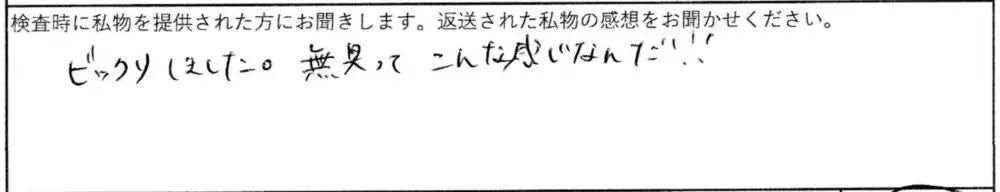 検査時に私物を提供された方にお聞きします。返送された私物の感想をお聞かせください。
ビックリしました。無臭って こんな感じなんだ!!!